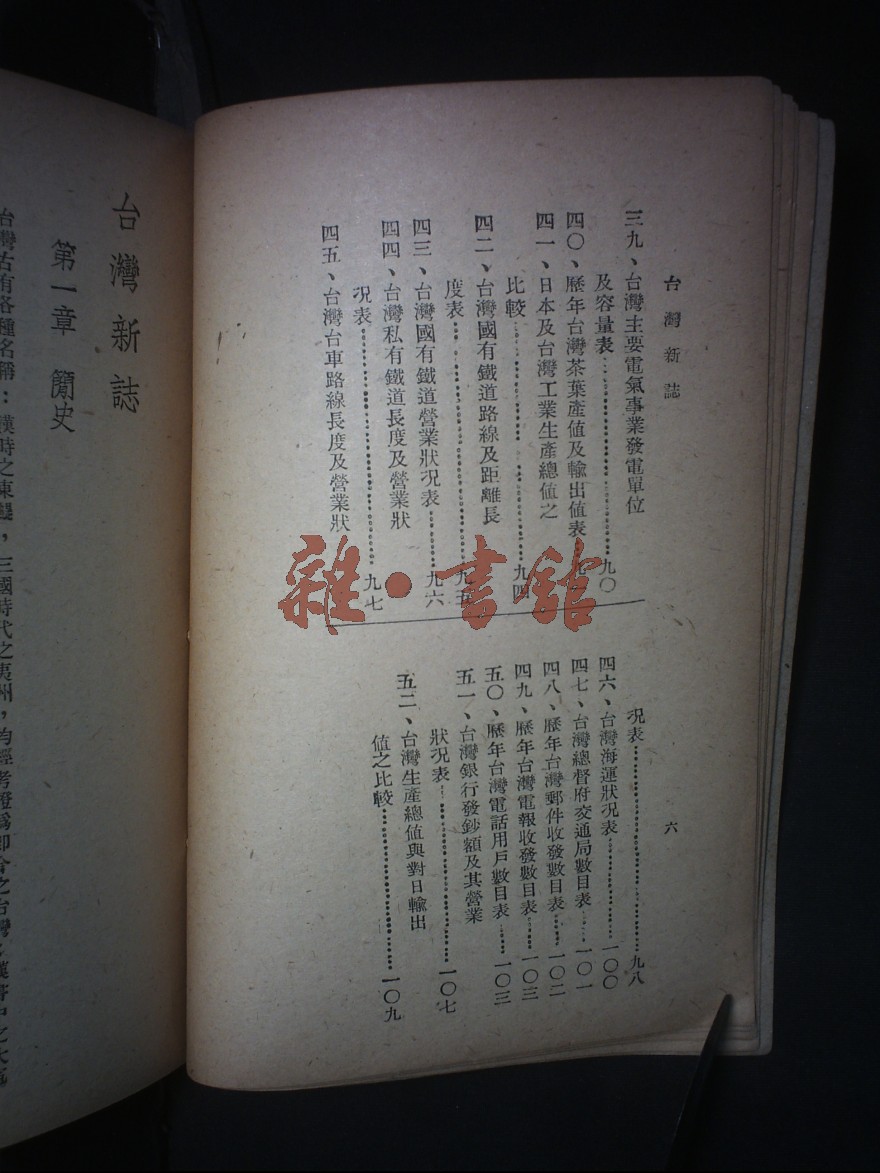 台灣新誌
三九、台灣主要電氣事業發電單位
及容量表……九〇
四〇、歷年台灣茶葉產值及輸出値表……九
四一、日本及台灣工業生產總値之
比較……九四
四二、台灣國有鐵道路線及距離長
度表……九五
四三、台灣國有鐵道營業狀況表……九六
四四、台灣私有鐵道長度及營業狀
況表……九七
四五、台灣台車路線長度及營業狀
況表……九八
四六、台灣海運狀況表……一〇〇
四七、台灣總督府交通局數目表……一〇一
四八、歷年台灣郵件收發數目表……一〇二
四九、歷年台灣電報收發數目表……一〇三
五〇、歷年台灣電話用戶數目表……一〇三
五一、台灣銀行發鈔額及其營業
狀況表……一〇七
五二、台灣生產總値與對日輸出
値之比較……一〇九
六
台灣新誌
第一章 簡史
台灣古有各種名稱：漢時之東鯷，三國時代之夷州，均經考證爲即今之台灣
雜·書館